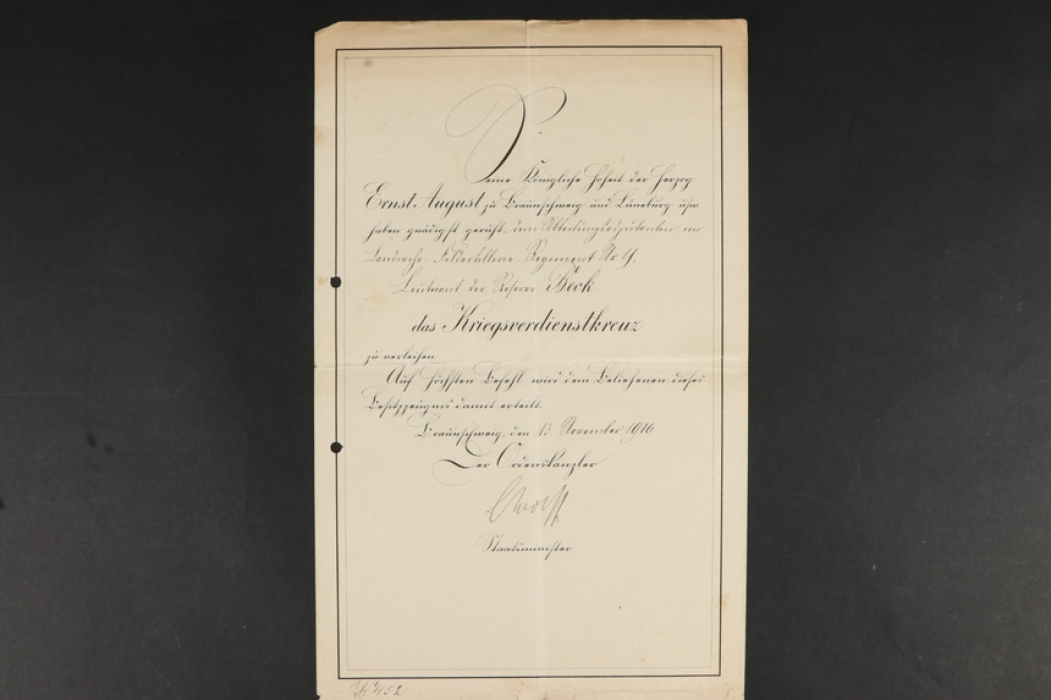 Seine Königliche Hoheit der Herzog
Ernst August zu Braunschweig und Lüneburg usw
haben gnädigst geruht, dem Abteilungsadjutanten im
Landwehr-Feldartillerie-Regiment Nr 9.
Leutnant der Reserve Beck
das Kriegsverdienstkreuz
zu verleihen.
Auf Höchsten Befehl wird dem Beliehenen dieses
Besitzzeugnis damit erteilt.
Braunschweig, den 13 November 1916
Der Ordenskanzler
Staatsminister